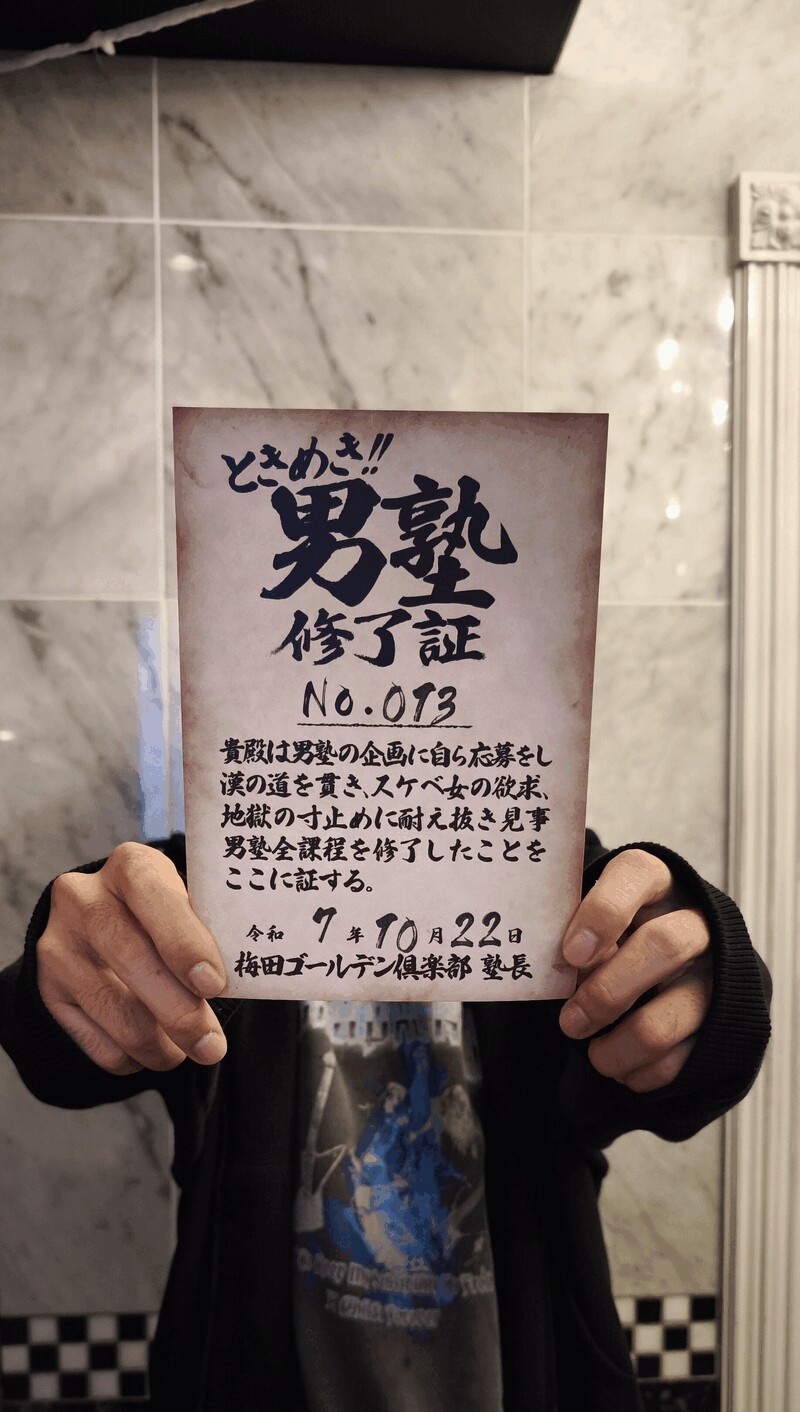 ときめき!!
男塾
修了証
No.013
貴殿は男塾の企画に自ら応募をし
漢の道を貫き、スケベ女の欲求、
地獄の寸止めに耐え抜き見事
男塾全課程を修了したことを
ここに証する。
令和 7 年 10 月 22 日
梅田ゴールデン倶楽部 塾長